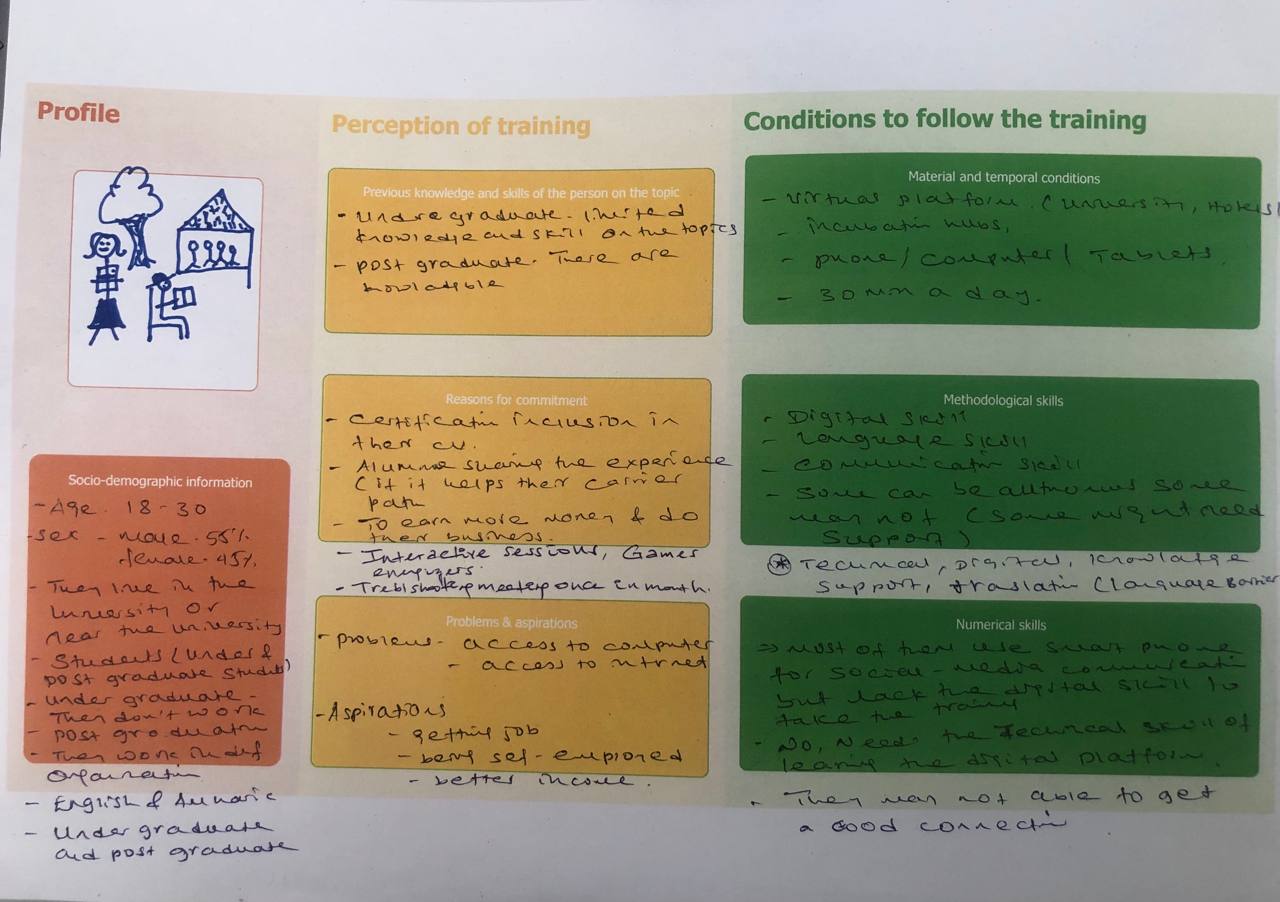 Profile
Socio-demographic information
- Age. 18-30
- sex - male. 55%.
female. 45%.
- They live in the
University or
near the university
- Students (under &
post graduate students)
- under graduate -
They don't work
- post graduation
- They work in dif
Organization
- English & Amharic
- Under graduate
and post graduate
Perception of training
Previous knowledge and skills of the person on the topic
- undregraduate. limited
knowledge and skill on the topics
- post graduate. There are
knowladgible
Reasons for commitment
- Certification inclusion in
ther cv.
- Alumine sharing the experience
(if it helps ther carrier
path
- To earn more money & do
their business.
- Interactive sessions, Games
energizers.
- meeting once in month.
Problems & aspirations
- problems - access to computer
- access to intrnet
- Aspirations
- getting job
- being self-employed
- better income.
Conditions to follow the training
Material and temporal conditions
- virtual platform. (university, Hotels)
- incubation hubs,
- phone / computer / Tablets.
- 30 min a day.
Methodological skills
- Digital skill
- language skill
- communication skill
- Some can be some
may not (some might need
support)
* Technical, Digital, knowladge
support, traslation (language Barrier
Numerical skills
=> most of them use smart phone
for social-media communication
but lack the digital skill to
take the traing
- No, Needs the technical skill of
learing the digital platform.
- They may not able to get
a good connection